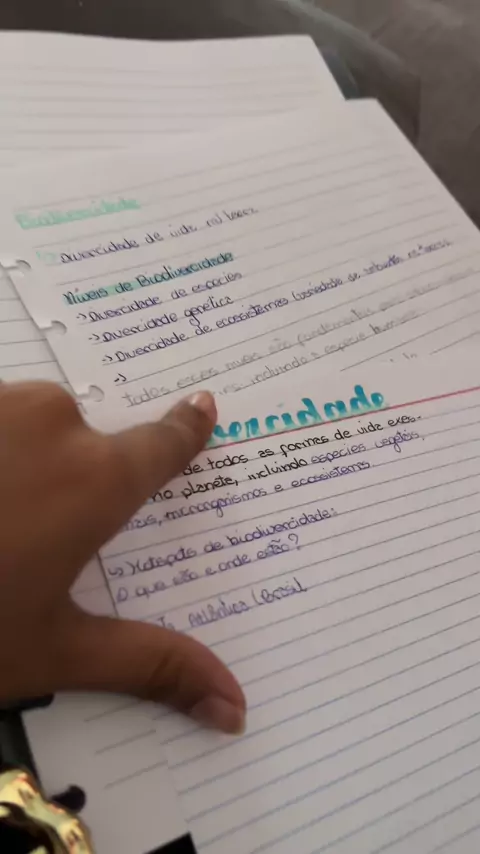 Biodivercidade
Divercidade de vida na terra
Níveis de Biodivercidade
-> Divercidade de espécies
-> Divercidade genética
-> Divercidade de ecossistemas (variedade de
->
todos esses níveis são fundamentais para
incluindo a espécie humana
vercidade
de todos as formas de vida exes-
no planeta, incluindo espécies vegetais,
mais, microorgenismos e ecossistemas
↳ Hotspots de biodivercidade:
O que são e onde estão?
Atlântica (Brasil